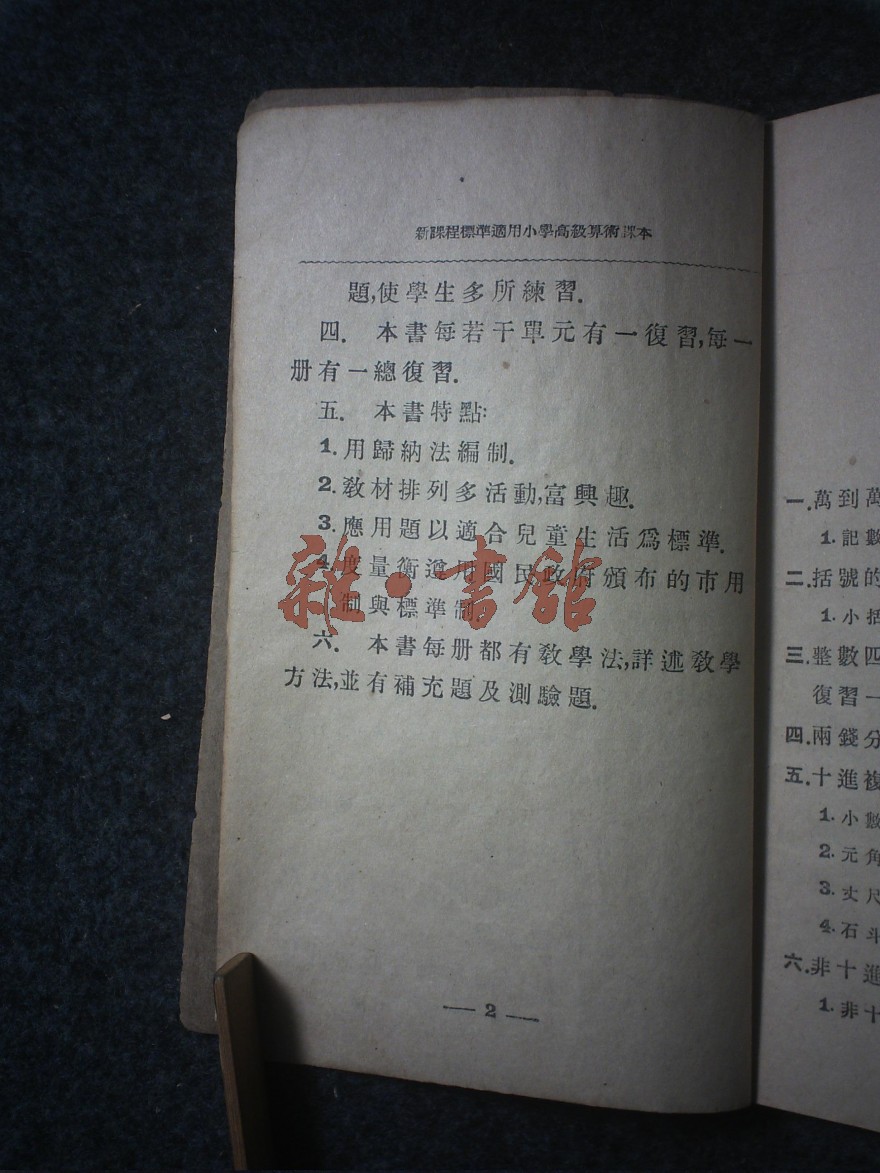 新課程標準適用小學高級算術課本
題,使學生多所練習.
四. 本書每若干單元有一復習,每一
册有一總復習.
五. 本書特點:
1. 用歸納法編制.
2. 敎材排列多活動,富興趣.
3. 應用題以適合兒童生活爲標準.
4. 度量衡遵用國民政府頒布的市用
制與標準制.
六. 本書每册都有敎學法,詳述敎學
方法,並有補充題及測驗題.
— 2 —
雜·書館
一.萬到萬
1. 記數
二.括號的
1. 小括
三.整數四
復習一
四.兩錢分
五.十進複
1. 小數
2. 元角
3. 丈尺
4. 石斗
六.非十進
1. 非十